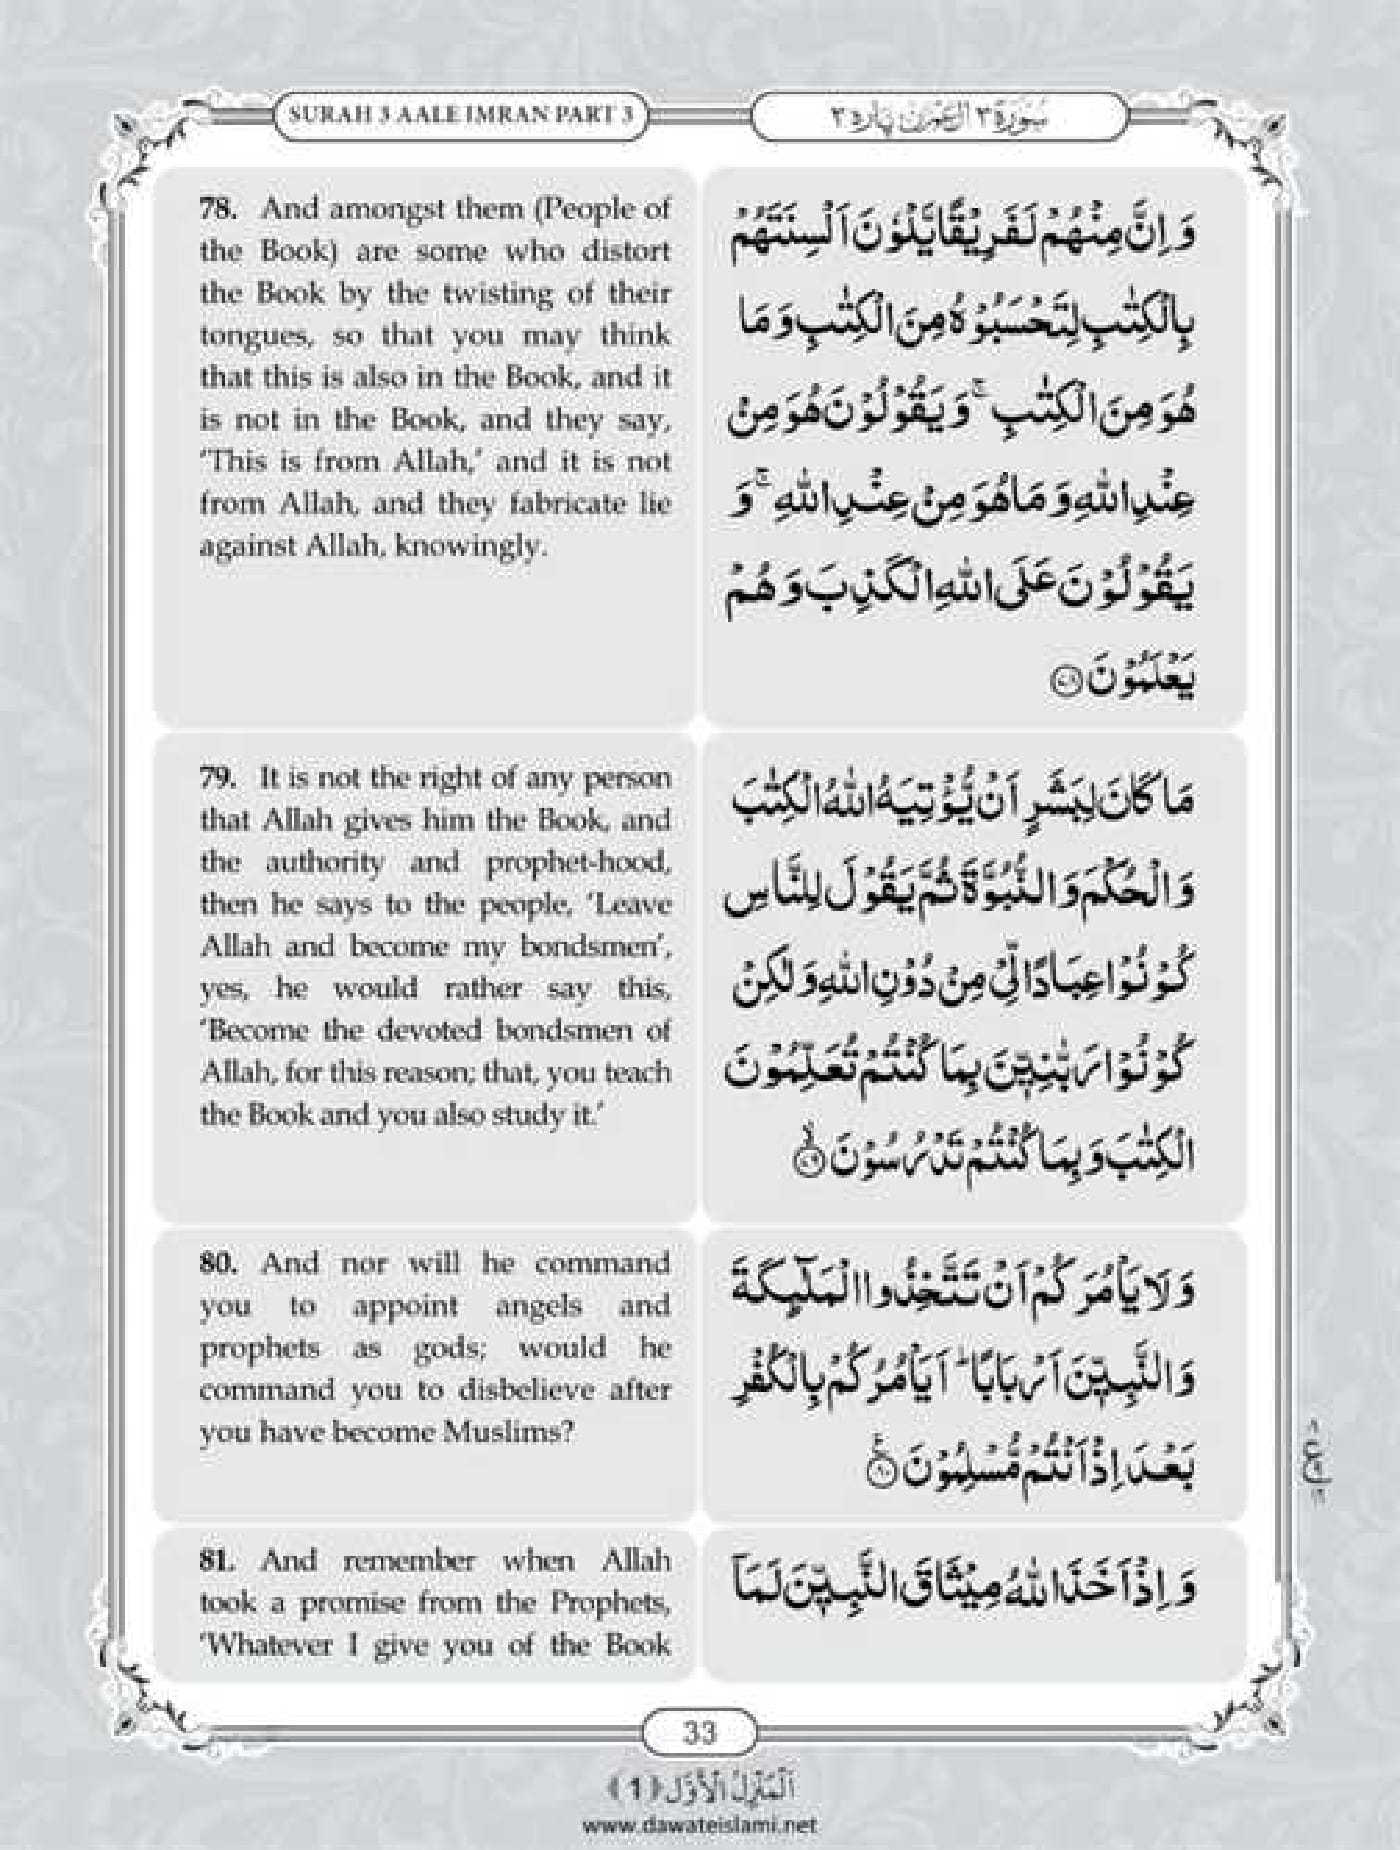 SURAH 3 AALE IMRAN PART 3
سُوْرَة ٣ اٰلِ عِمْرٰن پاره ٣
78. And amongst them (People of
the Book) are some who distort
the Book by the twisting of their
tongues, so that you may think
that this is also in the Book, and it
is not in the Book, and they say,
‘This is from Allah,’ and it is not
from Allah, and they fabricate lie
against Allah, knowingly.
وَ اِنَّ مِنْهُمْ لَفَرِیْقًا یَّلْوٗنَ اَلْسِنَتَهُمْ
بِالْكِتٰبِ لِتَحْسَبُوْهُ مِنَ الْكِتٰبِ وَ مَا
هُوَ مِنَ الْكِتٰبِ ۚ وَ یَقُوْلُوْنَ هُوَ مِنْ
عِنْدِ اللّٰهِ وَ مَا هُوَ مِنْ عِنْدِ اللّٰهِ ۚ وَ
یَقُوْلُوْنَ عَلَى اللّٰهِ الْكَذِبَ وَ هُمْ
یَعْلَمُوْنَ ﴿۷۸﴾
79. It is not the right of any person
that Allah gives him the Book, and
the authority and prophet-hood,
then he says to the people, ‘Leave
Allah and become my bondsmen’,
yes, he would rather say this,
‘Become the devoted bondsmen of
Allah, for this reason; that, you teach
the Book and you also study it.’
مَا كَانَ لِبَشَرٍ اَنْ یُّؤْتِیَهُ اللّٰهُ الْكِتٰبَ
وَ الْحُكْمَ وَ النُّبُوَّةَ ثُمَّ یَقُوْلَ لِلنَّاسِ
كُوْنُوْا عِبَادًا لِّیْ مِنْ دُوْنِ اللّٰهِ وَ لٰكِنْ
كُوْنُوْا رَبّٰنِیّٖنَ بِمَا كُنْتُمْ تُعَلِّمُوْنَ
الْكِتٰبَ وَ بِمَا كُنْتُمْ تَدْرُسُوْنَ ﴿ۙ۷۹﴾
80. And nor will he command
you to appoint angels and
prophets as gods; would he
command you to disbelieve after
you have become Muslims?
وَ لَا یَاْمُرَكُمْ اَنْ تَتَّخِذُوا الْمَلٰٓىِٕكَةَ
وَ النَّبِیّٖنَ اَرْبَابًا ؕ اَیَاْمُرُكُمْ بِالْكُفْرِ
بَعْدَ اِذْ اَنْتُمْ مُّسْلِمُوْنَ ﴿۸۰﴾
81. And remember when Allah
took a promise from the Prophets,
‘Whatever I give you of the Book
وَ اِذْ اَخَذَ اللّٰهُ مِیْثَاقَ النَّبِیّٖنَ لَمَاۤ
33
اَلْمَنْزِلُ الْاَوَّل ﴿1﴾
www.dawateislami.net